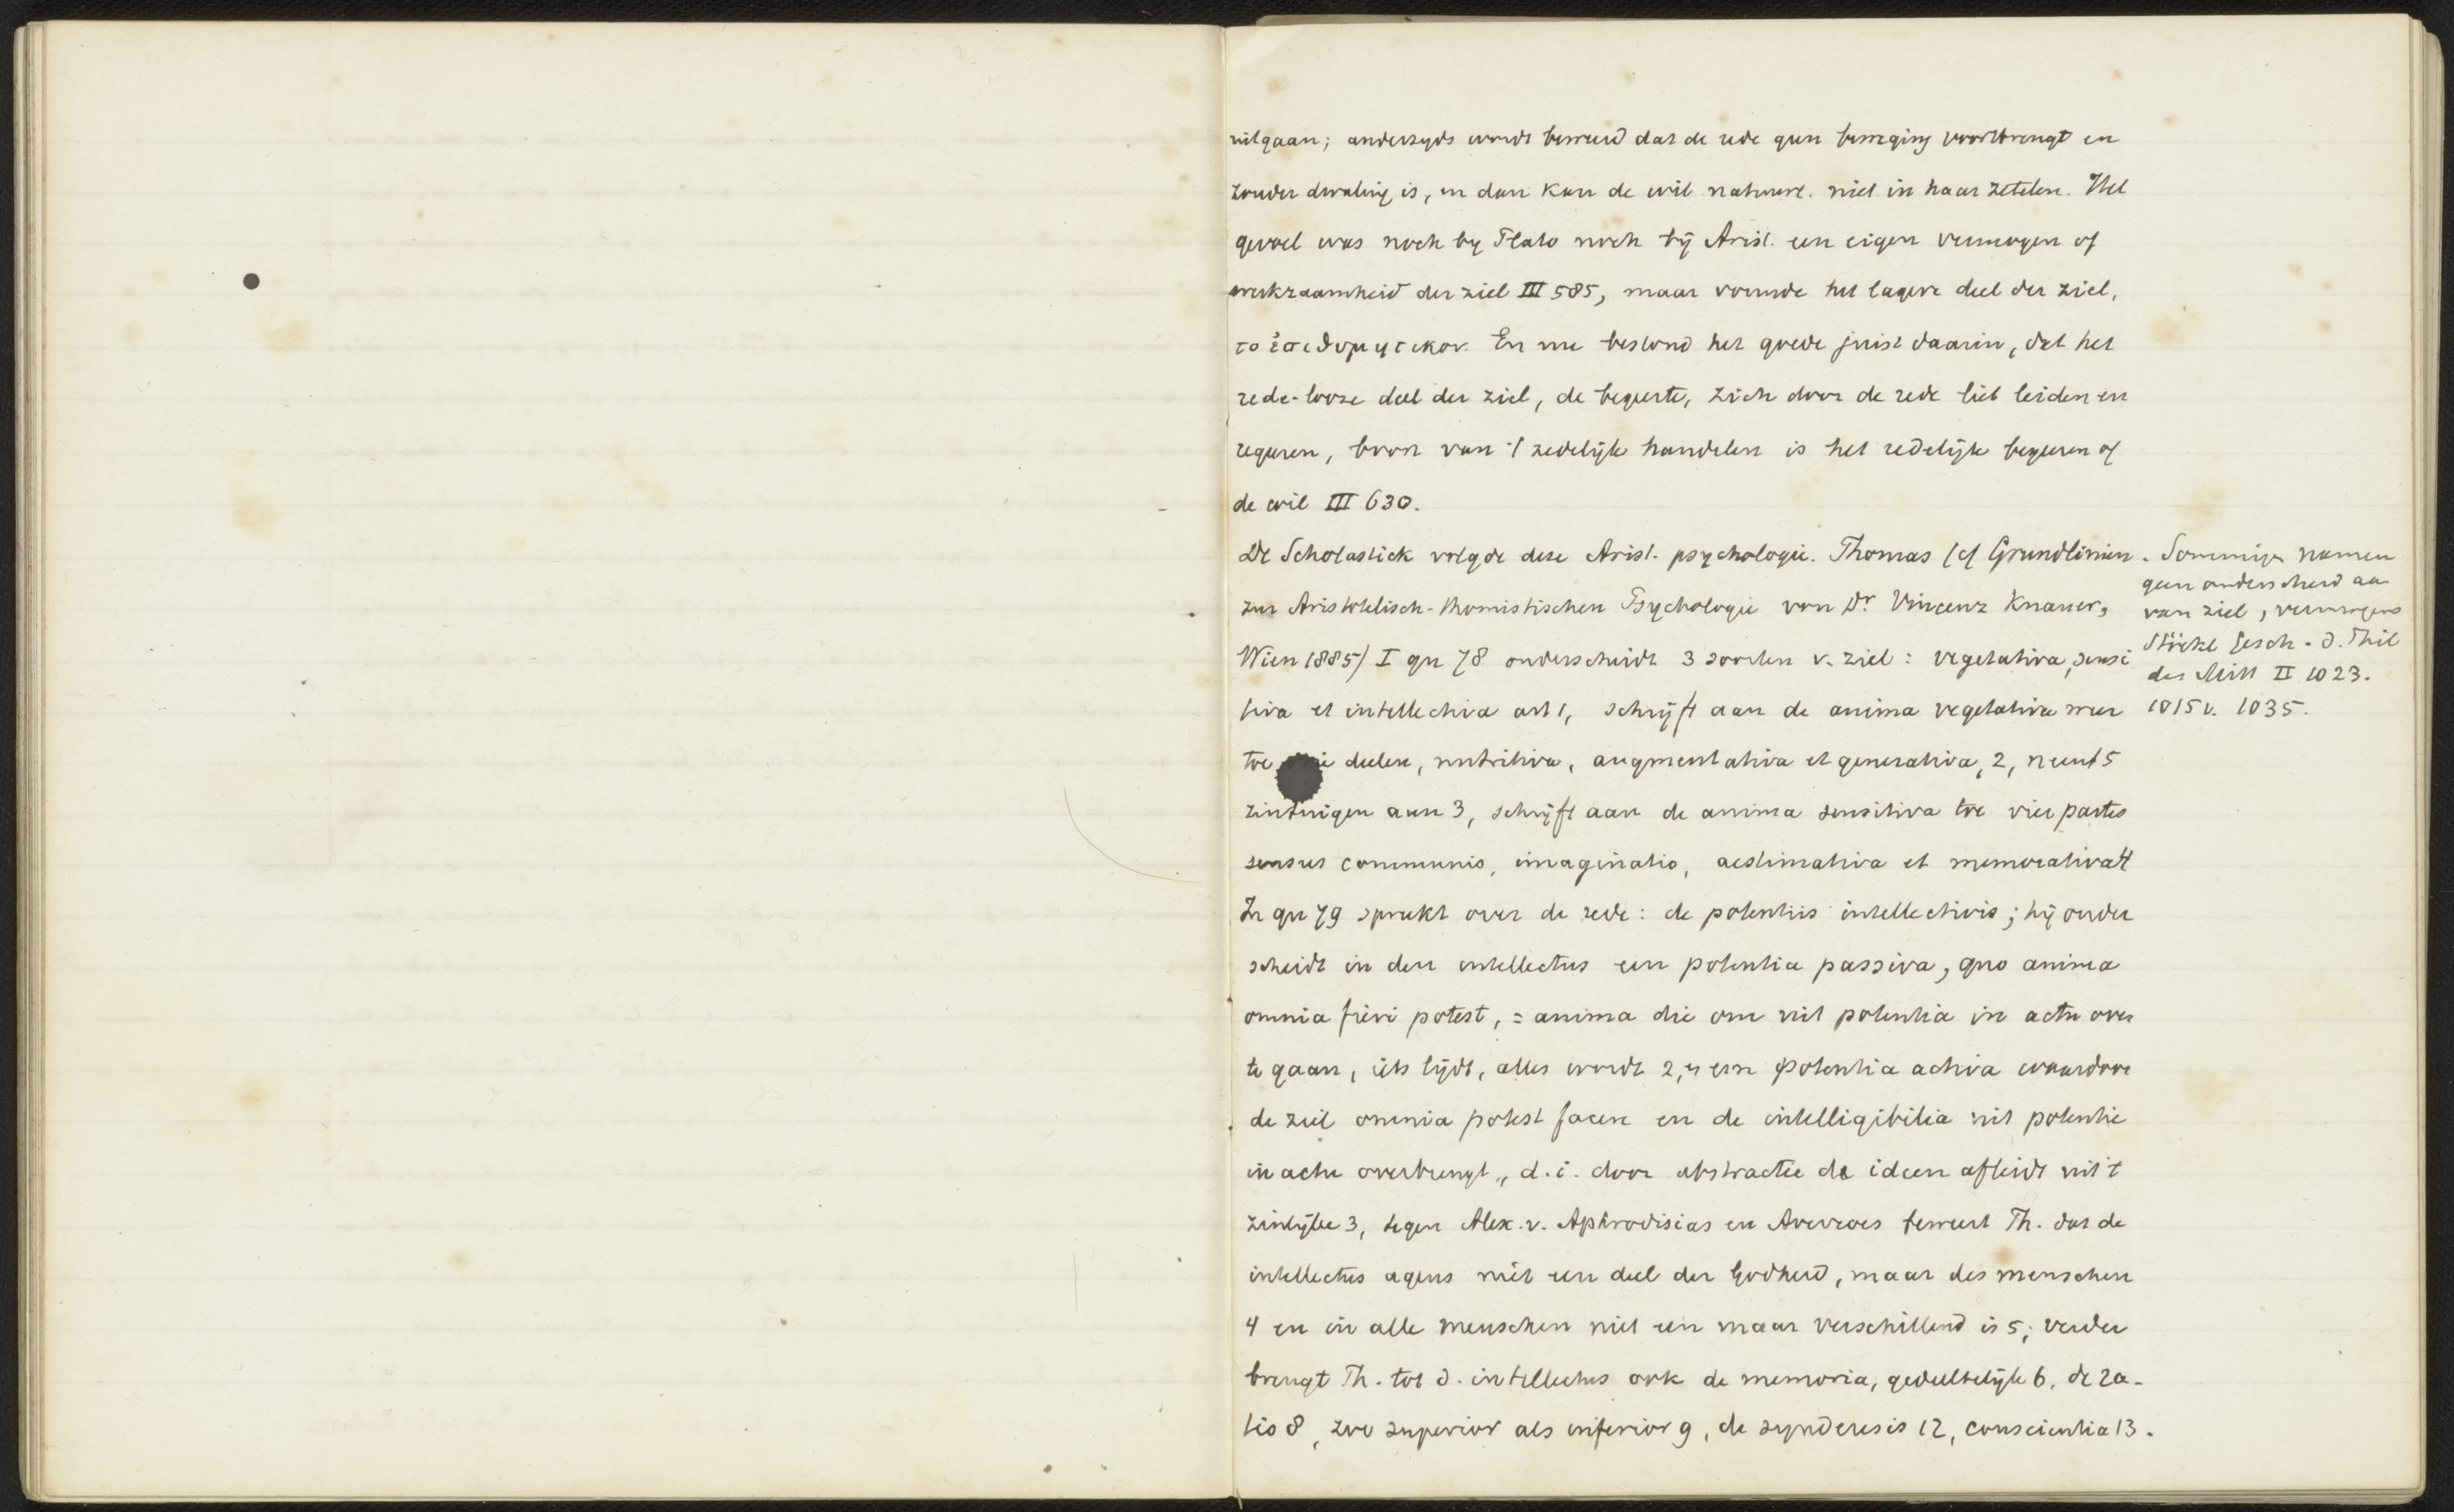 uitgaan; anderzyds wordt beweerd dat de rede geen beweging voortbrengt en
zonder dwaling is, en dan kan de wil natuurl. niet in haar zetelen. Het
gevoel was noch by Plato noch bij Arist. een eigen vermogen of
werkzaamheid der ziel III 585, maar vormde het lagere deel der ziel,
το ἐπιθυμητικον. En nu bestond het goede juist daarin, dat het
rede-looze deel der ziel, de begeerte, zich door de rede liet leiden en
regeeren, bron van 't zedelijk handelen is het redelijk begeeren of
de wil III 630.
De Scholastiek volgde deze Arist. psychologie. Thomas (cf Grundlinien
zur Aristotelisch-thomistischen Psychologie von Dr Vincenz Knauer,
Wien 1885) I qu 78 onderscheidt 3 soorten v. ziel: vegetativa, sensi
tiva et intellectiva art 1, schrijft aan de anima vegetativa weer
toe deelen, nutritiva, augmentativa et generativa, 2, neemt 5
zintuigen aan 3, schrijft aan de anima sensitiva toe vier partes
sensus communis, imaginatio, aestimativa et memorativa 4
In qu 79 spreekt over de rede: de potentiis intellectivis; hij onder
scheidt in den intellectus een potentia passiva, quo anima
omnia fieri potest, = anima die om uit potentia in actu over
te gaan, iets lijdt, alles wordt 2, en een potentia activa waardoor
de ziel omnia potest facere en de intelligibilia uit potentie
in actu overbrengt, d.i. door abstractie de ideen afleidt uit 't
zinlijke 3, tegen Alex. v. Aphrodisias en Averroes beweert Th. dat de
intellectus agens niet een deel der Godheid, maar des menschen
4 en in alle menschen niet een maar verschillend is 5; verder
brengt Th. tot d. intellectus ook de memoria, gedeeltelijk 6, de ra-
tio 8, zoo superior als inferior 9, de synderesis 12, conscientia 13.
. Sommige namen
geen onderscheid aan
van ziel, vermogens
Stöckl Gesch. d. Phil
des Mitt II 1023.
1015 v. 1035.